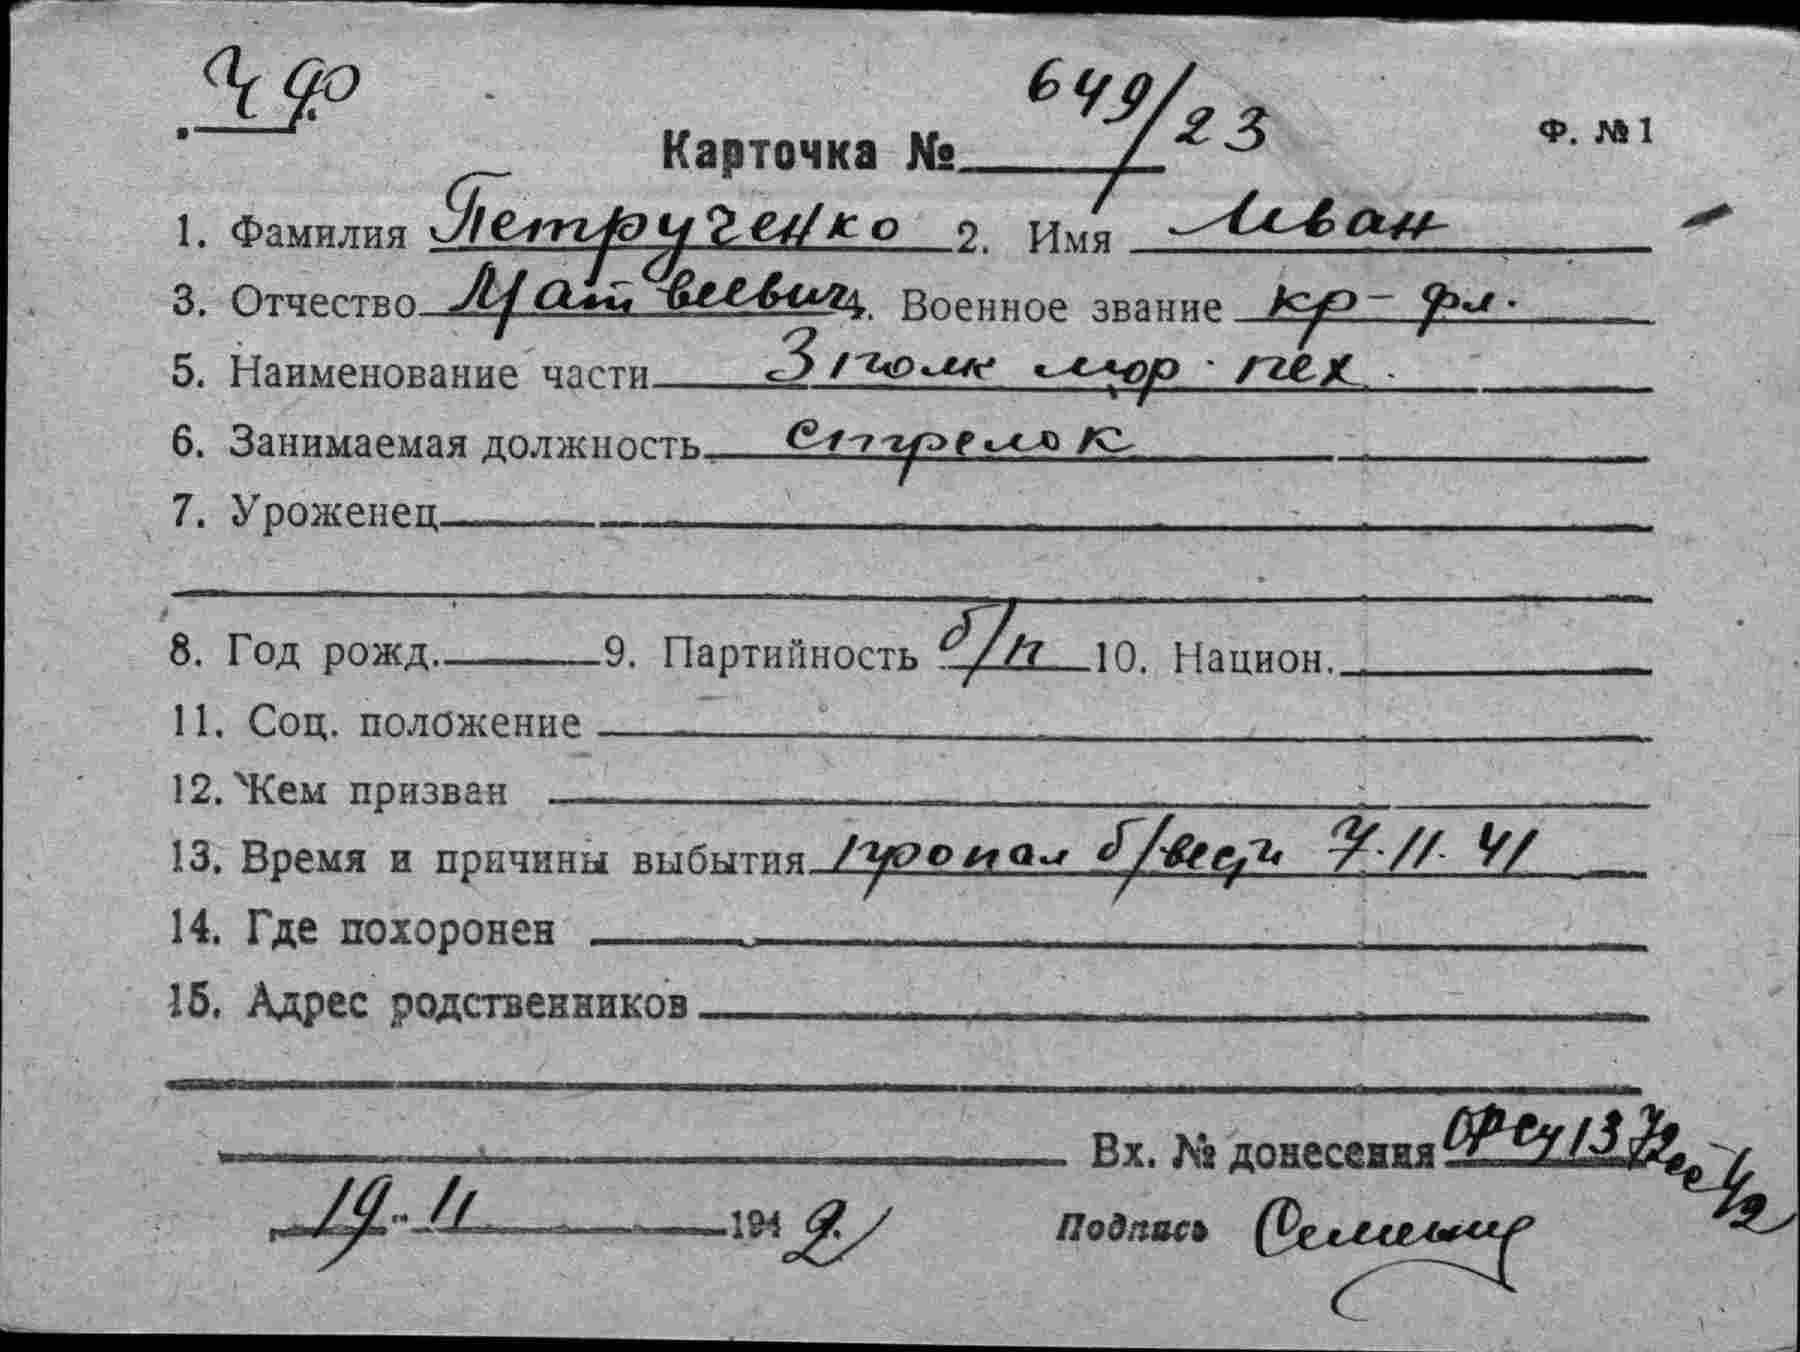 ЧФ
Карточка № 649/23 Ф. №1
1. Фамилия Петрученко 2. Имя Иван
3. Отчество Матвеевич 4. Военное звание кр-фл.
5. Наименование части 3 полк мор. пех.
6. Занимаемая должность стрелок
7. Уроженец
8. Год рожд. 9. Партийность б/п 10. Национ.
11. Соц. положение
12. Кем призван
13. Время и причины выбытия пропал б/вести 7.11.41
14. Где похоронен
15. Адрес родственников
Вх. № донесения 1372сс
19.11 1942 Подпись